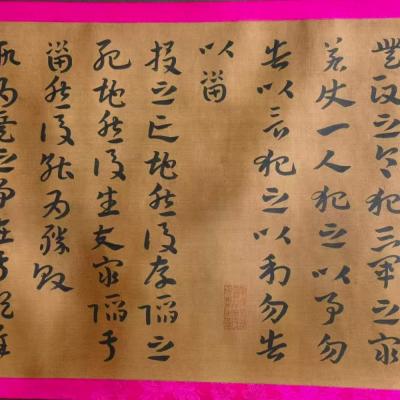 無政之令犯三軍之眾
若使一人犯之以事勿
告以言犯之以利勿告
以害
投之亡地然後存陷之
死地然後生夫眾陷于
害然後能為勝敗
為兵之事在於順